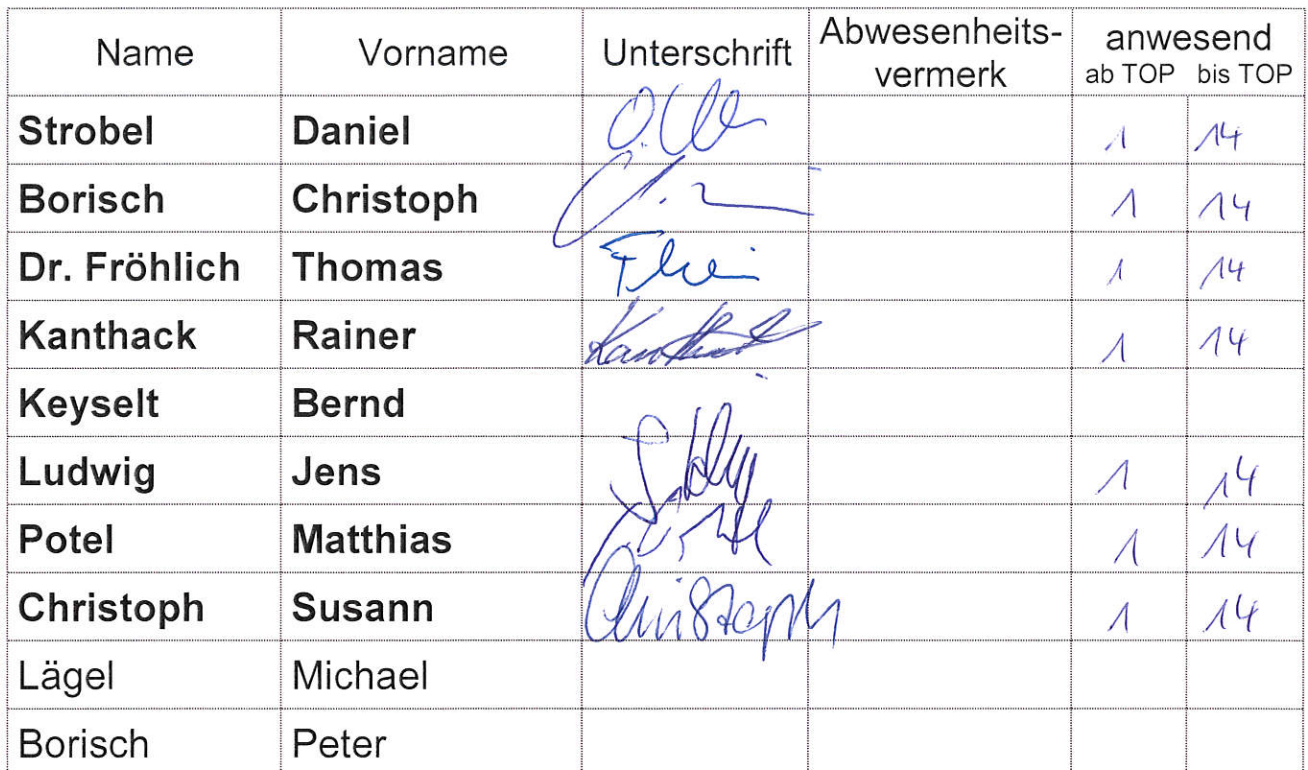 Name Vorname Unterschrift Abwesenheits-vermerk anwesend
ab TOP bis TOP
Strobel Daniel 1 14
Borisch Christoph 1 14
Dr. Fröhlich Thomas 1 14
Kanthack Rainer Kanthack 1 14
Keyselt Bernd
Ludwig Jens 1 14
Potel Matthias 1 14
Christoph Susann Christoph 1 14
Lägel Michael
Borisch Peter